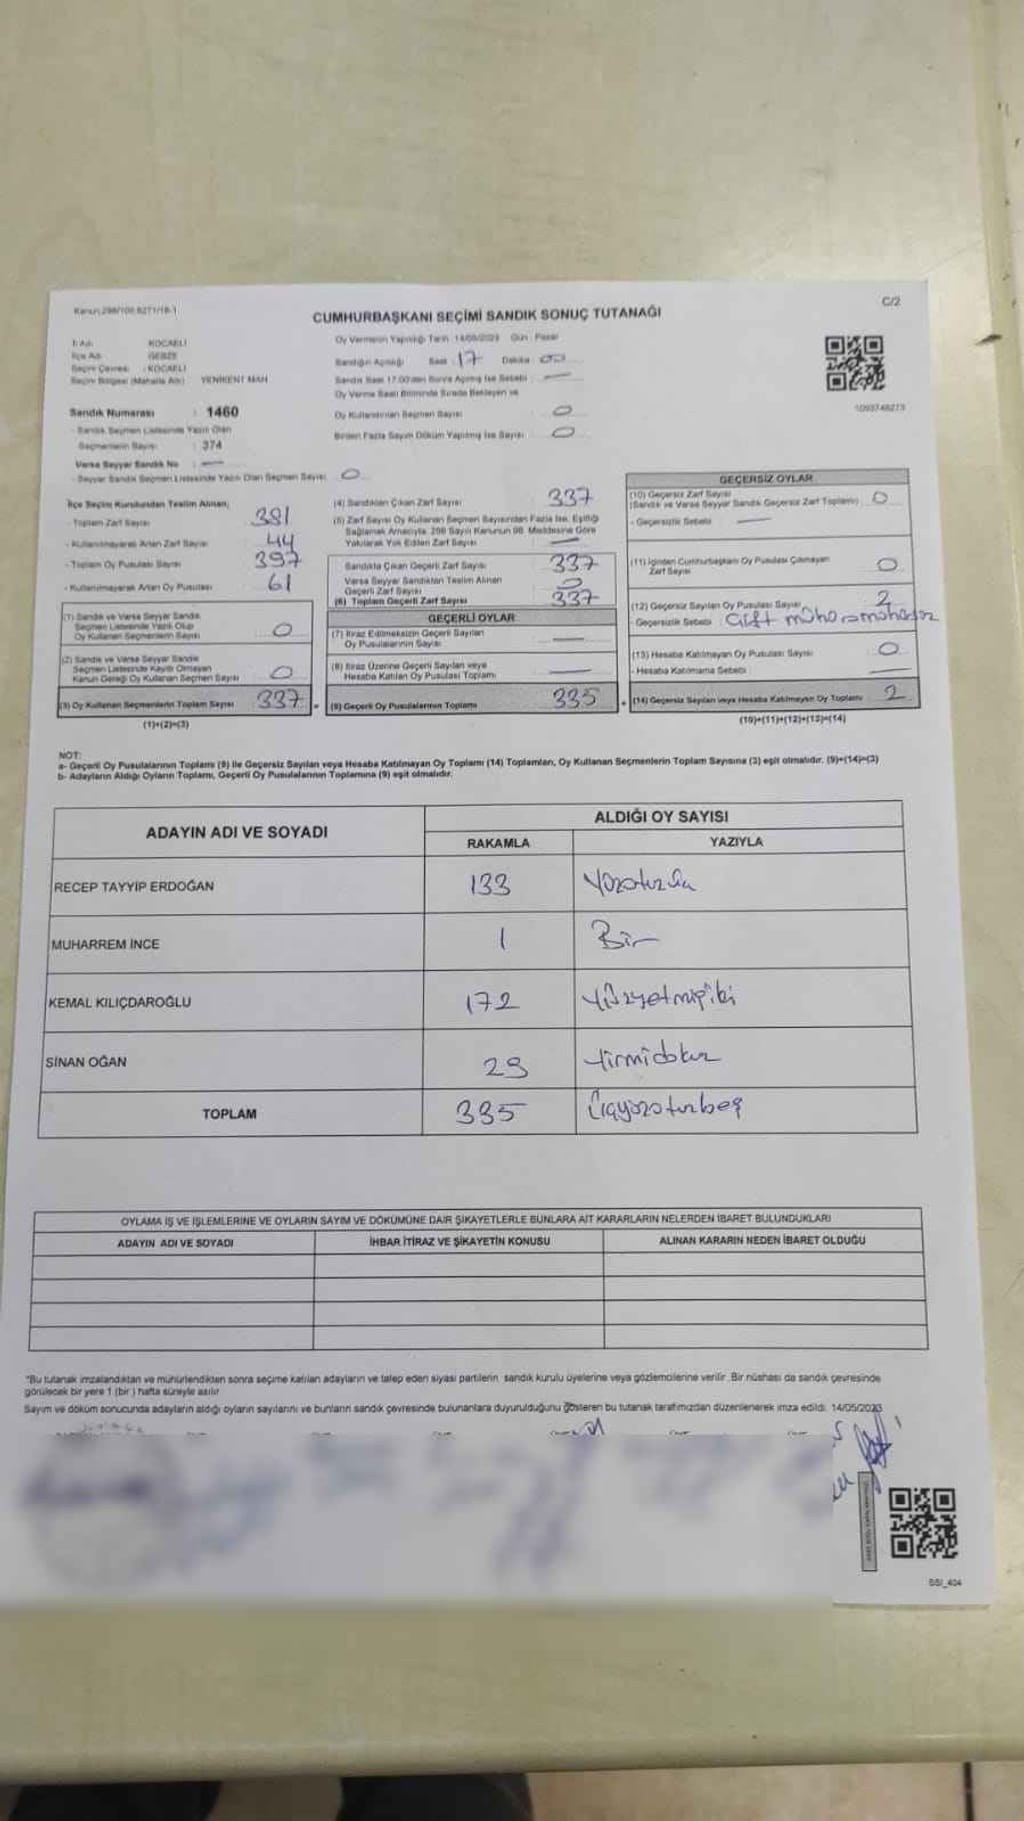 C/2
CUMHURBAŞKANI SEÇİMİ SANDIK SONUÇ TUTANAĞI
İl Adı : KOCAELİ
İlçe Adı : GEBZE
Seçim Çevresi : KOCAELİ
Seçim Bölgesi (Mahalle Adı) : YENİKENT MAH
Sandık Numarası : 1460
- Sandık Seçmen Listesinde Yazılı Olan
Seçmenlerin Sayısı : 374
Varsa Seyyar Sandık No : —
- Seyyar Sandık Seçmen Listesinde Yazılı Olan Seçmen Sayısı : 0
Oy Vermenin Yapıldığı Tarih : 14/05/2023 Gün : Pazar
Sandığın Açıldığı Saat : 17 Dakika : 00
Sandık Saat 17.00'den Sonra Açılmış İse Sebebi : —
Oy Verme Saati Bitiminde Sırada Bekleyen ve
Oy Kullandırılan Seçmen Sayısı : 0
Birden Fazla Sayım Döküm Yapılmış İse Sayısı : 0
1093746273
İlçe Seçim Kurulundan Teslim Alınan;
- Toplam Zarf Sayısı 381
- Kullanılmayarak Artan Zarf Sayısı 44
- Toplam Oy Pusulası Sayısı 397
- Kullanılmayarak Artan Oy Pusulası 61
(1) Sandık ve Varsa Seyyar Sandık
Seçmen Listesinde Yazılı Olup
Oy Kullanan Seçmenlerin Sayısı 0
(2) Sandık ve Varsa Seyyar Sandık
Seçmen Listesinde Kayıtlı Olmayan
Kanun Gereği Oy Kullanan Seçmen Sayısı 0
(3) Oy Kullanan Seçmenlerin Toplam Sayısı 337
(1)+(2)=(3)
(4) Sandıktan Çıkan Zarf Sayısı 337
(5) Zarf Sayısı Oy Kullanan Seçmen Sayısından Fazla İse, Eşitliği
Sağlamak Amacıyla, 298 Sayılı Kanunun 98. Maddesine Göre
Yakılarak Yok Edilen Zarf Sayısı —
Sandıkta Çıkan Geçerli Zarf Sayısı 337
Varsa Seyyar Sandıktan Teslim Alınan
Geçerli Zarf Sayısı 0
(6) Toplam Geçerli Zarf Sayısı 337
GEÇERLİ OYLAR
(7) İtiraz Edilmeksizin Geçerli Sayılan
Oy Pusulalarının Sayısı —
(8) İtiraz Üzerine Geçerli Sayılan veya
Hesaba Katılan Oy Pusulası Toplamı —
(9) Geçerli Oy Pusulalarının Toplamı 335
GEÇERSİZ OYLAR
(10) Geçersiz Zarf Sayısı
(Sandık ve Varsa Seyyar Sandık Geçersiz Zarf Toplamı) 0
- Geçersizlik Sebebi —
(11) İçinden Cumhurbaşkanı Oy Pusulası Çıkmayan
Zarf Sayısı 0
(12) Geçersiz Sayılan Oy Pusulası Sayısı 2
- Geçersizlik Sebebi Çift
(13) Hesaba Katılmayan Oy Pusulası Sayısı 0
- Hesaba Katılmama Sebebi —
(14) Geçersiz Sayılan veya Hesaba Katılmayan Oy Toplamı 2
(10)+(11)+(12)+(13)=(14)
NOT:
a- Geçerli Oy Pusulalarının Toplamı (9) ile Geçersiz Sayılan veya Hesaba Katılmayan Oy Toplamı (14) Toplamları, Oy Kullanan Seçmenlerin Toplam Sayısına (3) eşit olmalıdır. (9)+(14)=(3)
b- Adayların Aldığı Oyların Toplamı, Geçerli Oy Pusulalarının Toplamına (9) eşit olmalıdır.
ADAYIN ADI VE SOYADI
ALDIĞI OY SAYISI
RAKAMLA YAZIYLA
RECEP TAYYİP ERDOĞAN 133
MUHARREM İNCE 1 Bir
KEMAL KILIÇDAROĞLU 172 Yüzyetmişiki
SİNAN OĞAN 29 Yirmidokuz
TOPLAM 335 Üçyüzotuzbeş
OYLAMA İŞ VE İŞLEMLERİNE VE OYLARIN SAYIM VE DÖKÜMÜNE DAİR ŞİKAYETLERLE BUNLARA AİT KARARLARIN NELERDEN İBARET BULUNDUKLARI
ADAYIN ADI VE SOYADI İHBAR İTİRAZ VE ŞİKAYETİN KONUSU ALINAN KARARIN NEDEN İBARET OLDUĞU
"Bu tutanak imzalandıktan ve mühürlendikten sonra seçime katılan adayların ve talep eden siyasi partilerin sandık kurulu üyelerine veya gözlemcilerine verilir. Bir nüshası da sandık çevresinde
görülecek bir yere 1 (bir) hafta süreyle asılır
Sayım ve döküm sonucunda adayların aldığı oyların sayılarını ve bunların sandık çevresinde bulunanlara duyurulduğunu gösteren bu tutanak tarafımızdan düzenlenerek imza edildi. 14/05/2023
SSI_404